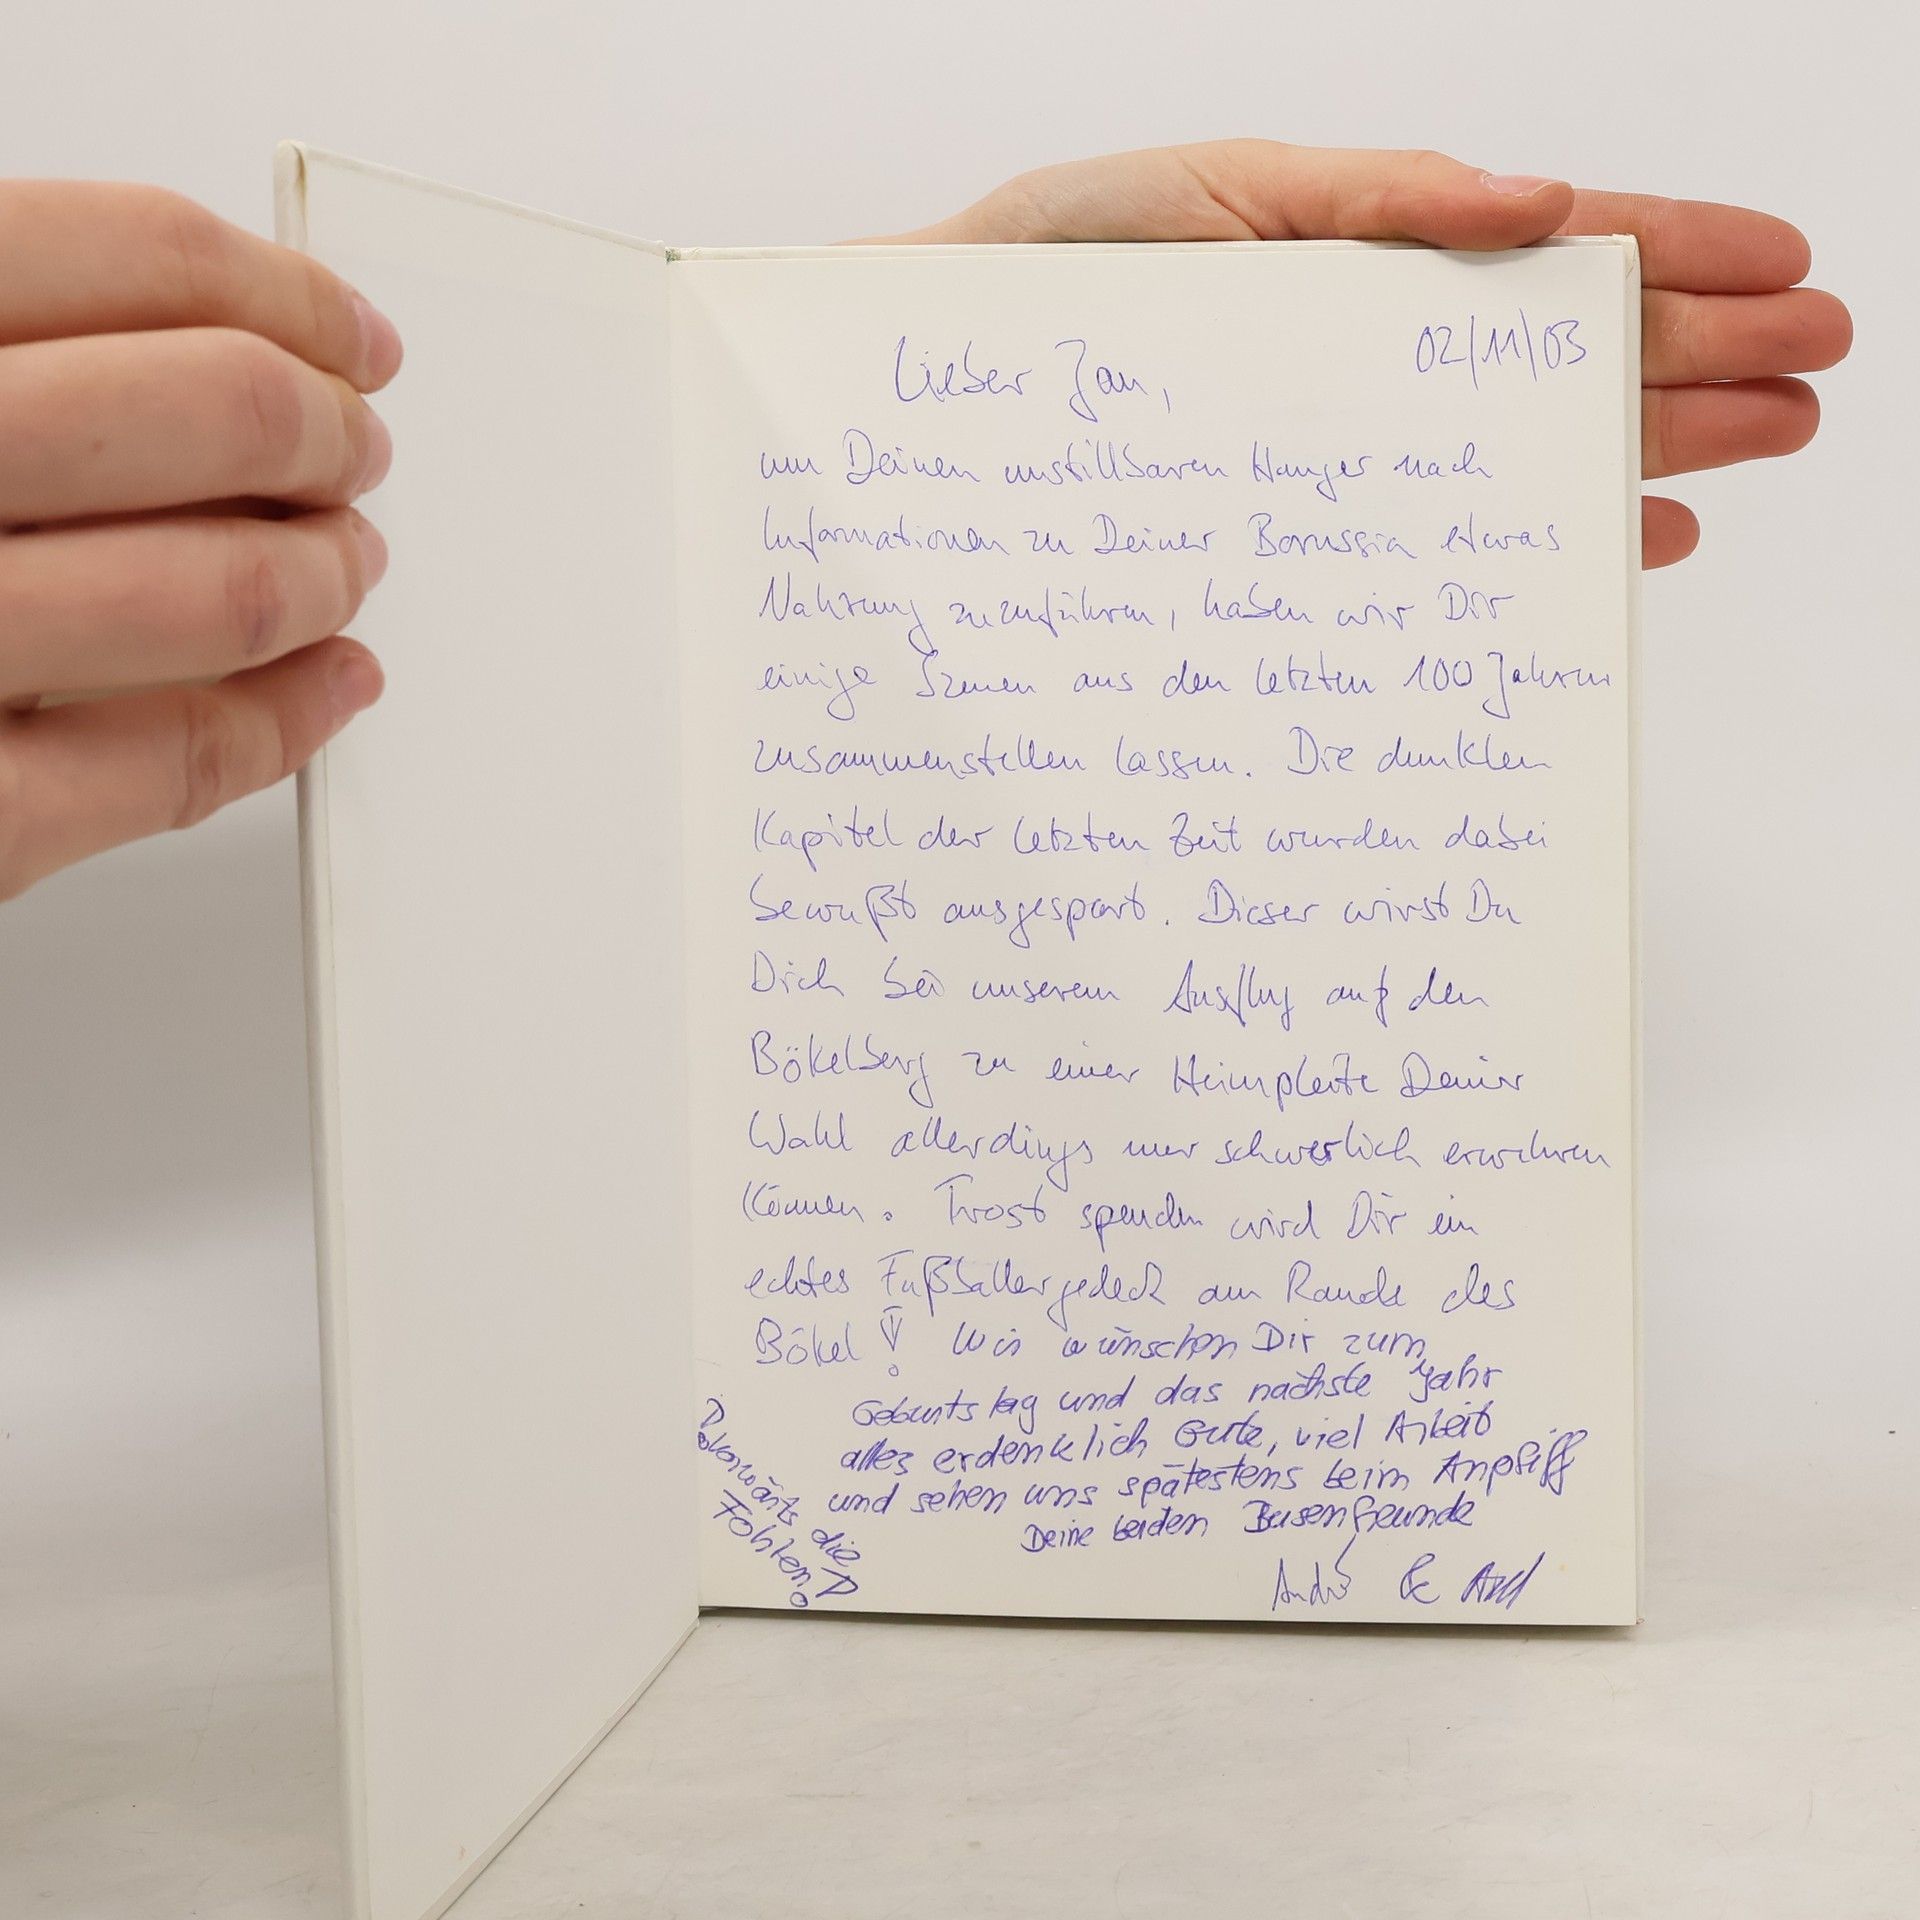 02/11/03
Lieber Jan,
um Deinen unstillbaren Hunger nach
Informationen zu Deiner Borussia etwas
Nahrung zuzuführen, haben wir Dir
einige Szenen aus den letzten 100 Jahren
zusammenstellen lassen. Die dunklen
Kapitel der letzten Zeit wurden dabei
bewußt ausgespart. Dieser wirst Du
Dich bei unserem Ausflug auf den
Bökelberg zu einer Heimpleite Deiner
Wahl allerdings nur schwerlich erwehren
können. Trost spenden wird Dir ein
echtes Fußballergedeck am Rande des
Bökel! Wir wünschen Dir zum
Geburtstag und das nächste Jahr
alles erdenklich Gute, viel Arbeit
und sehen uns spätestens beim Anpfiff
Deine beiden Busenfreunde
André & Axel
die
Fohlen!